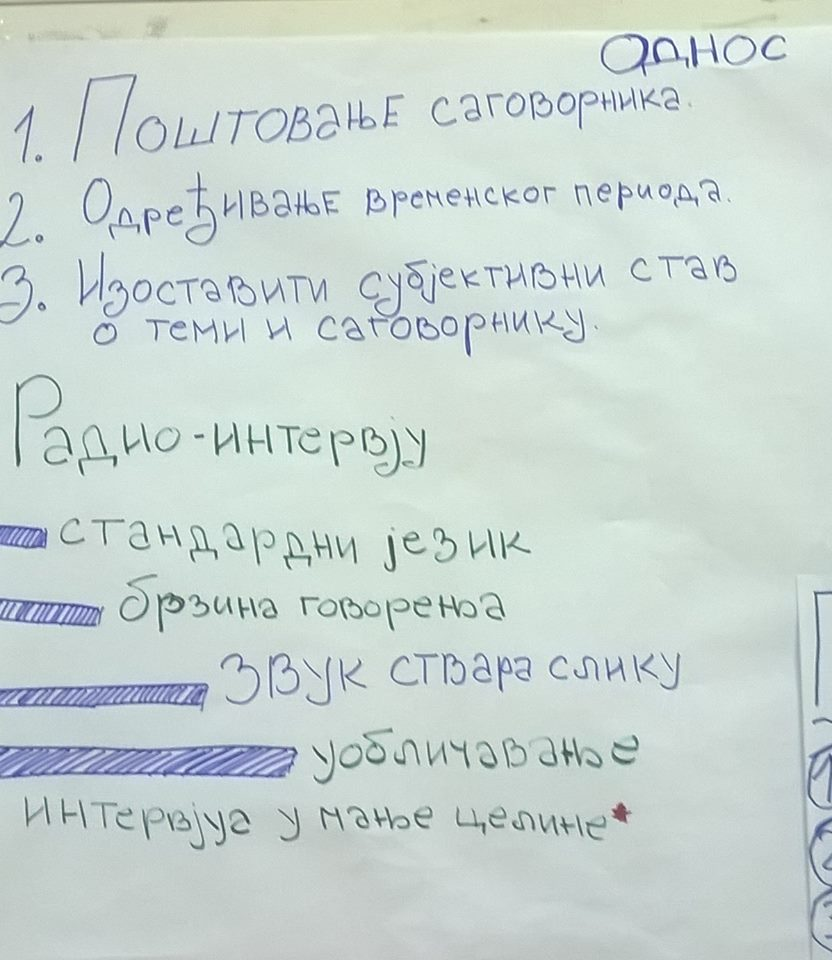 Однос
1. Поштовање саговорника.
2. Одређивање временског периода.
3. Изоставити субјективни став
о теми и саговорнику.
Радио-интервју
стандардни језик
брзина говорења
звук ствара слику
уобличавање
интервјуа у мање целине*
1
2